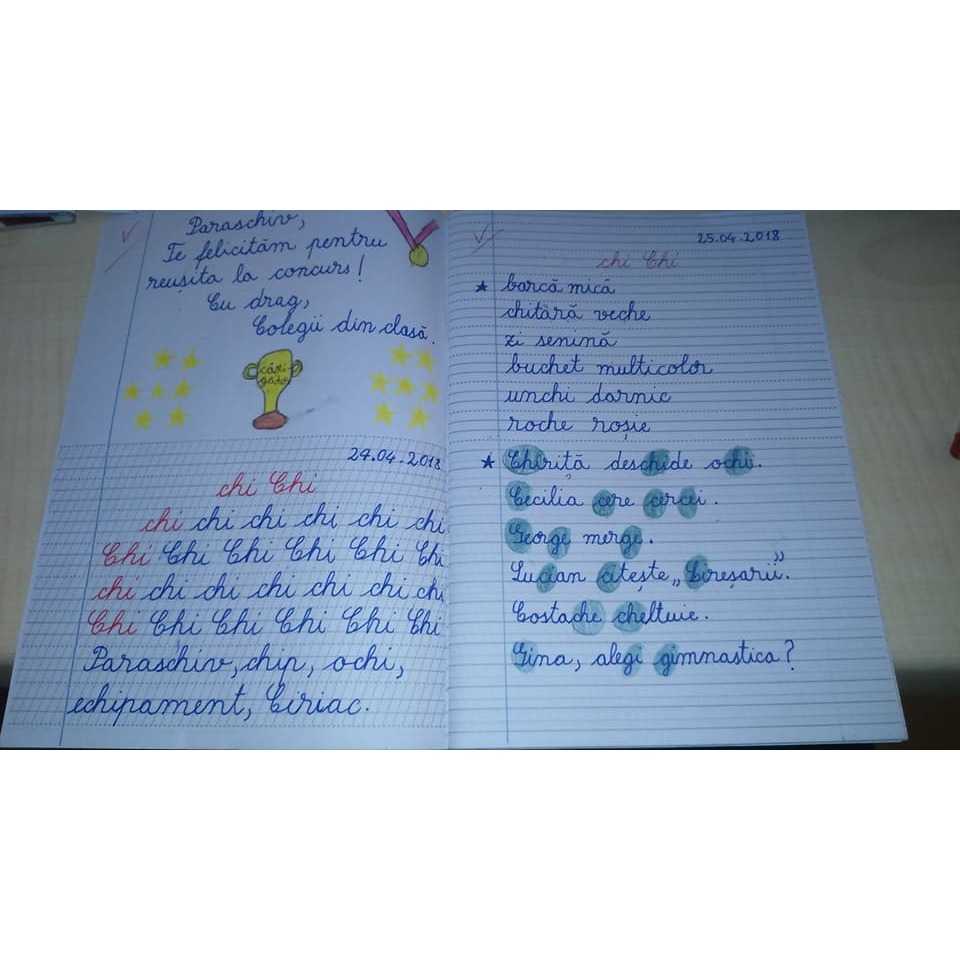 Paraschiv,
Te felicităm pentru
reușita la concurs!
Cu drag,
Colegii din clasă.
24.04.2018
chi Chi
chi chi chi chi chi chi
Chi Chi Chi Chi Chi Chi
chi chi chi chi chi chi chi
Chi Chi Chi Chi Chi Chi
Paraschiv, chip, ochi,
echipament, Ciriac.
25.04.2018
chi Chi
barcă mică
chitară veche
zi senină
buchet multicolor
unchi darnic
roche roșie
Chiriță deschide ochi.
Cecilia cere cercei.
George merge.
Lucian citește „Cireșarii".
Costache cheltuie.
Gina, alegi gimnastica?